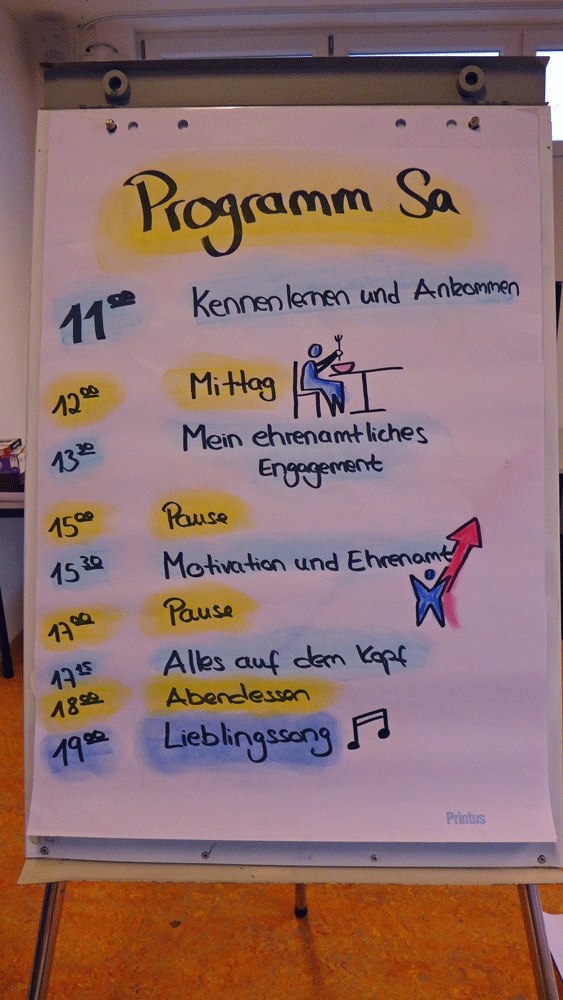 Programm Sa
11⁰⁰ Kennenlernen und Ankommen
12⁰⁰ Mittag
13³⁰ Mein ehrenamtliches
Engagement
15⁰⁰ Pause
15³⁰ Motivation und Ehrenamt
17⁰⁰ Pause
17¹⁵ Alles auf dem Kopf
18⁰⁰ Abendessen
19⁰⁰ Lieblingssong
Printus